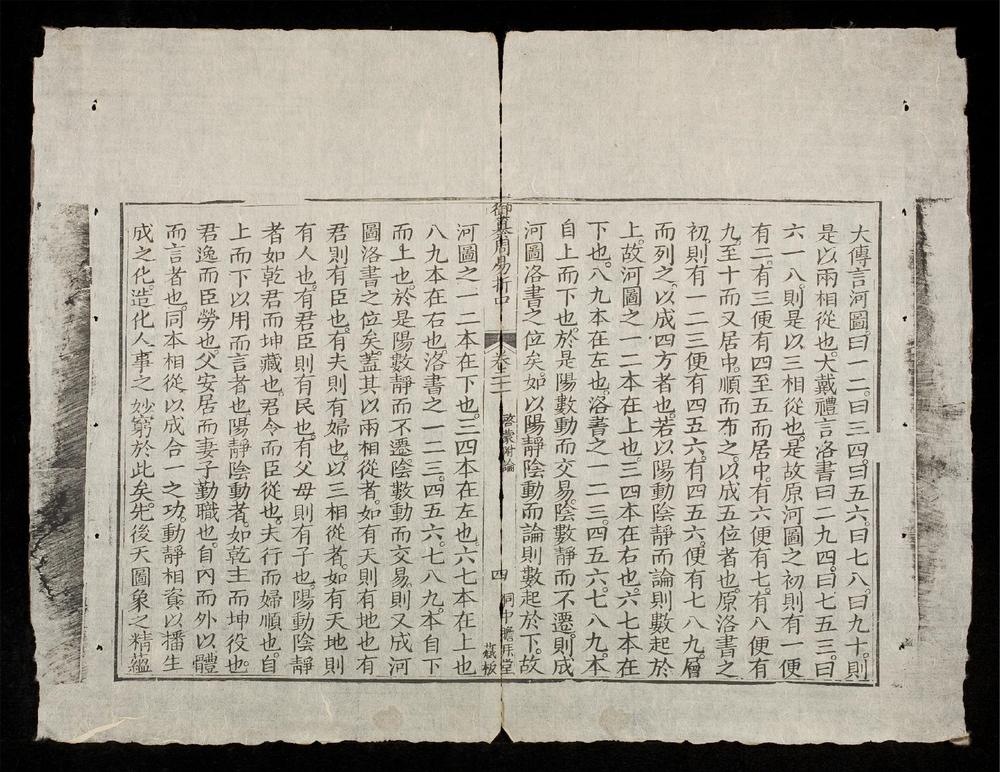 大傳言河圖。曰一二。曰三四。曰五六。曰七八。曰九十。則
是以兩相從也。大戴禮言洛書曰二九四。曰七五三。曰
六一八。則是以三相從也。是故原河圖之初則有一便
有二。有三便有四至五而居中。有六便有七。有八便有
九。至十而又居中。順而布之。以成五位者也。原洛書之
初。則有一二三便有四五六。有四五六。便有七八九。層
而列之。以成四方者也。若以陽動陰靜而論則數起於
上。故河圖之一二本在上也。三四本在右也。六七本在
下也。八九本在左也。洛書之一二三。四五六。七八九。本
自上而下也。於是陽數動而交易。陰數靜而不遷。則成
河圖洛書之位矣。如以陽靜陰動而論則數起於下。故
御纂周易折中
啓蒙附論
四
堂
藏板
河圖之一二本在下也。三四本在左也。六七本在上也
八九本在右也。洛書之一二三。四五六。七八九。本自下
而上也。於是陽數靜而不遷。陰數動而交易。則又成河
圖洛書之位矣。蓋其以兩相從者。如有天則有地也有
君則有臣也。有夫則有婦也。以三相從者。如有天地則
有人也。有君臣則有民也。有父母則有子也。陽動陰靜
者如乾君而坤藏也。君令而臣從也。夫行而婦順也。自
上而下以用而言者也。陽靜陰動者。如乾主而坤役也。
君逸而臣勞也。父安居而妻子勤職也。自內而外以體
而言者也。同本相從以成合一之功。動靜相資。以播生
成之化。造化人事之妙窮於此矣。先後天圖象之精蘊